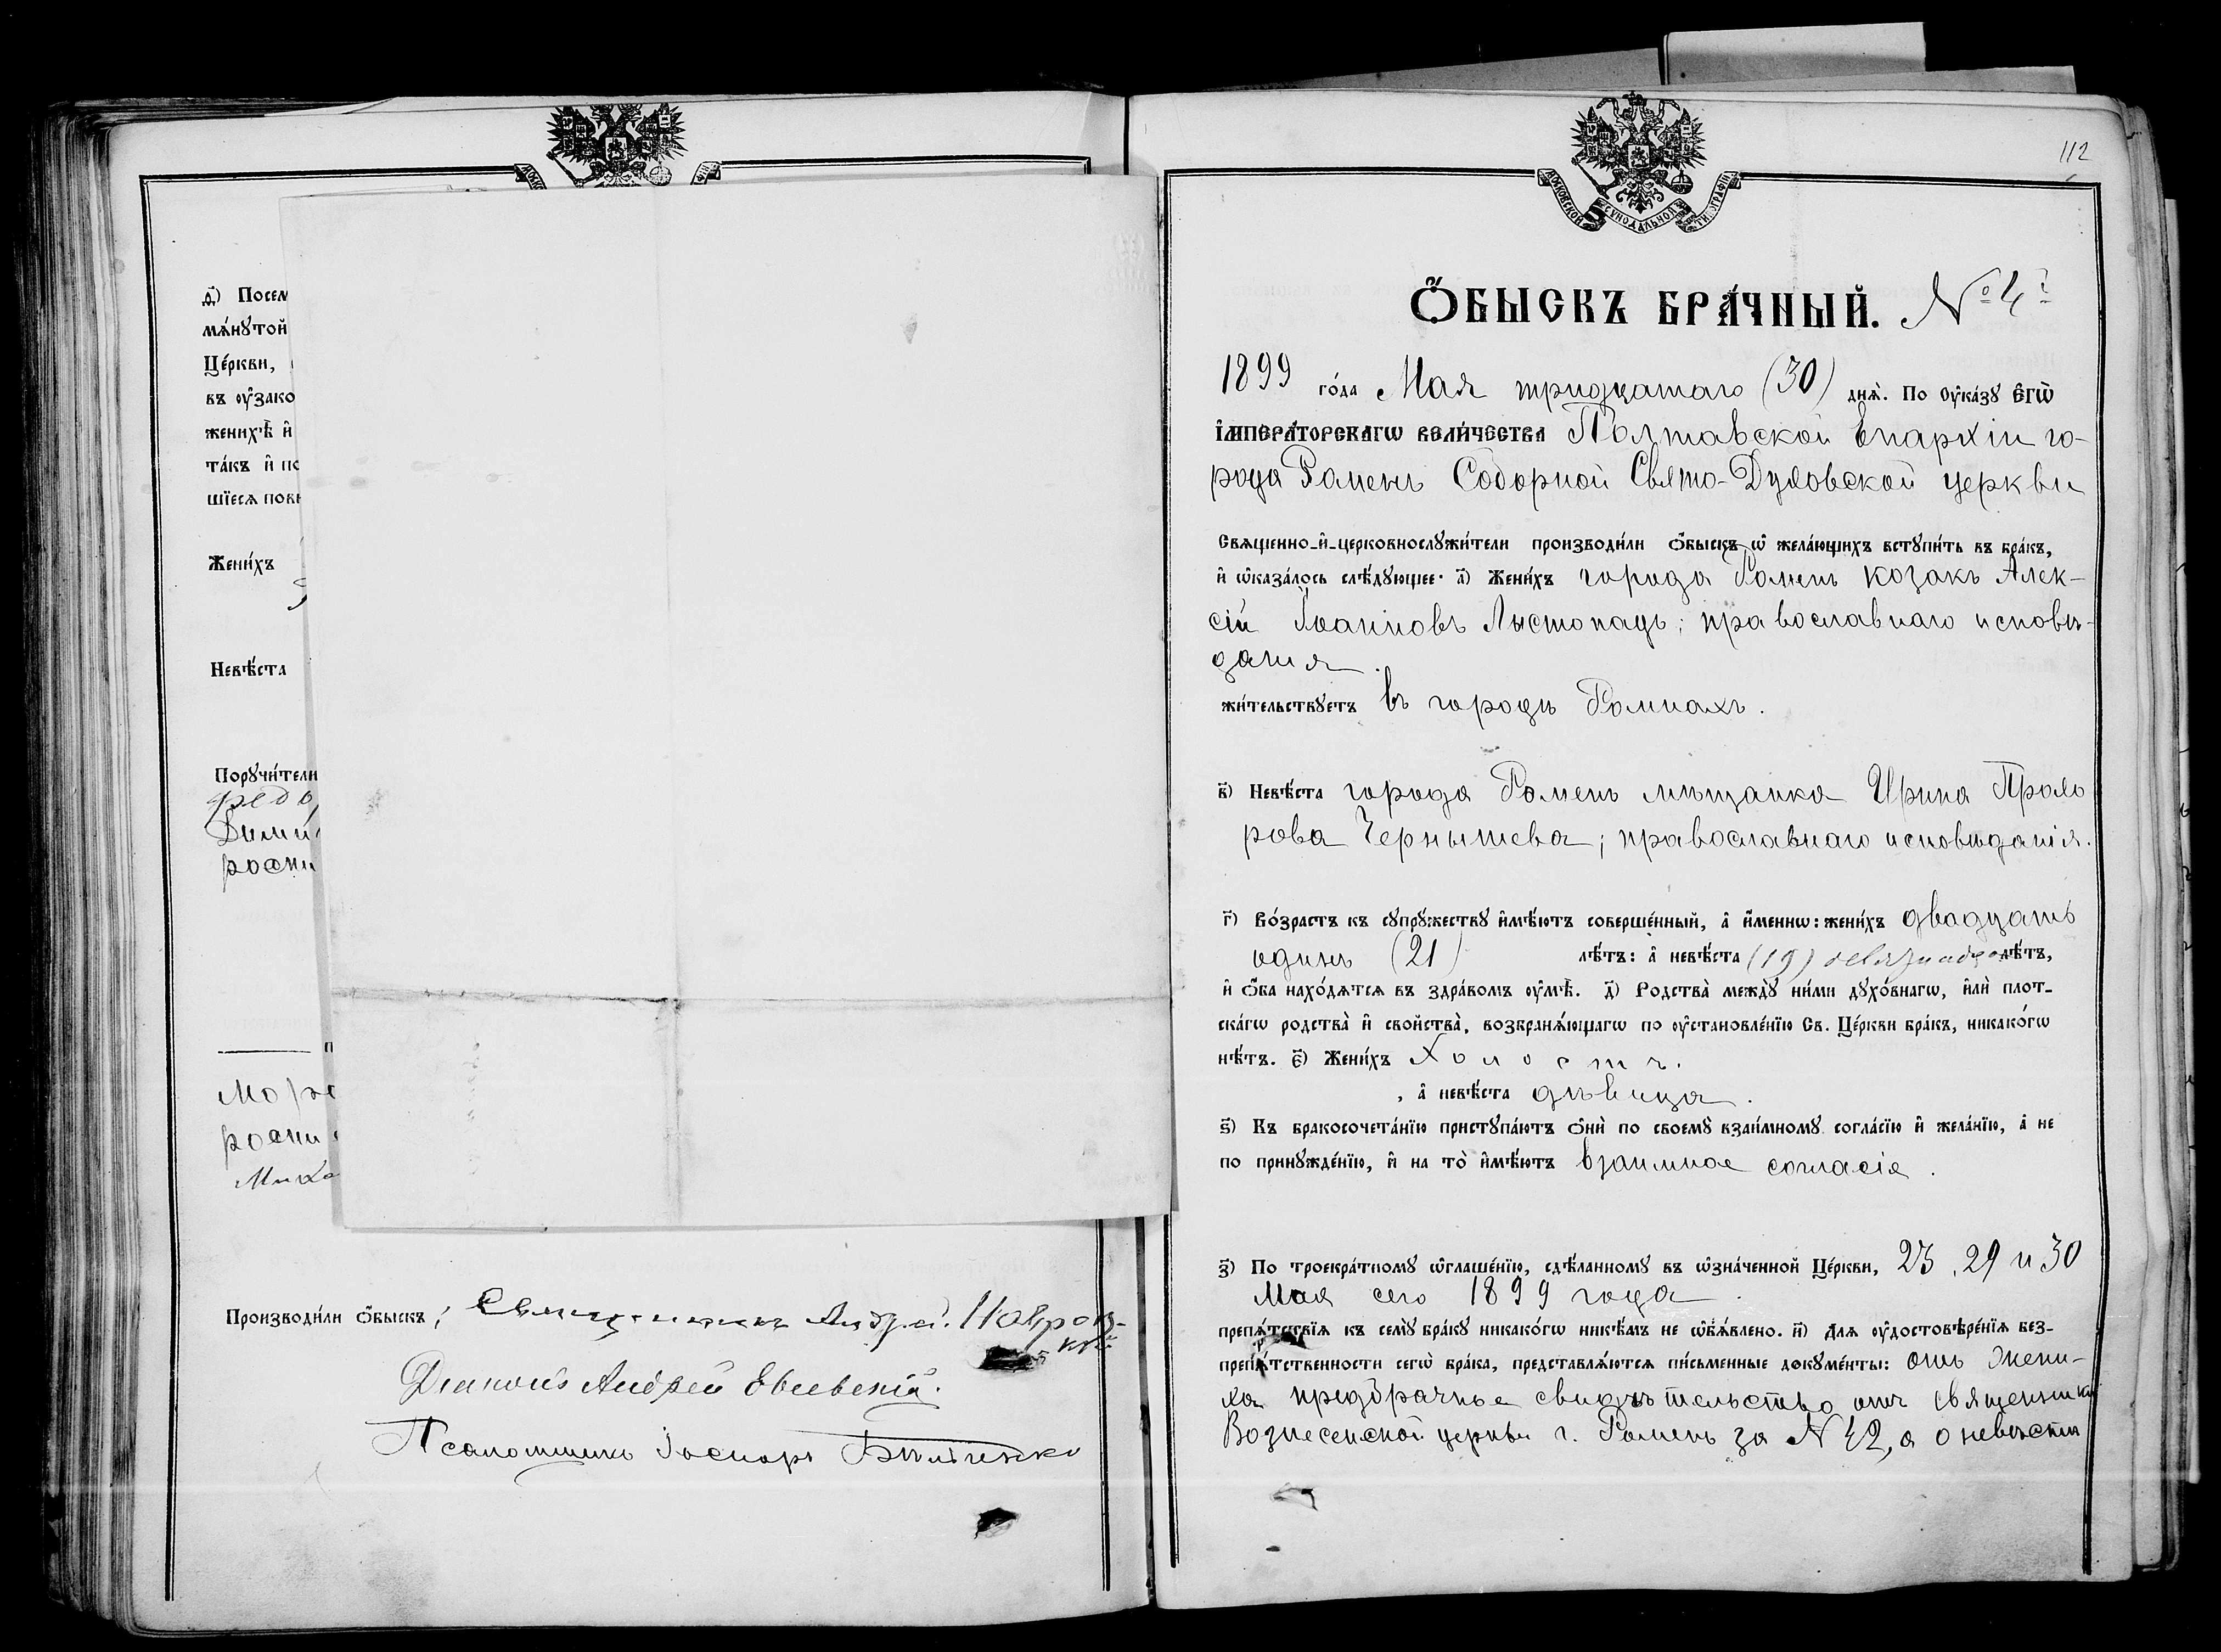 д҃) Посем
мѧ́нꙋтой
Це́ркви,
въ ᲂу҆зако
женихѣ̀ и҆
та́къ и҆ по
шїесѧ пов
Жени́хъ
Невѣ́ста
Порꙋчи́тели
федо
Дими
роспи
Мор
роспи
Миха
Производи́ли ѻ҆́быскъ: Священникъ Андрей
Діаконъ Андрей Евсевскій.
Псаломщикъ Іоснфъ
112
МОСКОВСКОЙ СѴНОДАЛЬНОЙ ТИПОГРАФІИ
Ѻ҆́БЫСКЪ БРА́ЧНЫЙ. № 4й
1899 го́да Мая тридцатаго (30) днѧ̀. По ᲂу҆ка́зꙋ Є҆ГѠ̀
І҆МПЕРА́ТОРСКАГѠ ВЕЛИ́ЧЕСТВА Полтавской Епархіи го-
рода Роменъ Соборной Свято-Духовской церкви
Свѧщенно-и҆-церковнослꙋжи́тели производи́ли ѻ҆́быскъ ѡ҆ жела́ющихъ встꙋпи́ть въ бра́къ,
и҆ ѡ҆каза́лось слѣ́дꙋющее: а҃) Жени́хъ города Роменъ козакъ Алек-
сій Іоанновъ Листопадъ; православнаго исповѣ-
данія.
жи́тельствꙋетъ въ городѣ Ромнахъ.
в҃) Невѣ́ста города Роменъ мѣщанка Ирина Прохо
рова Чернышева; православнаго исповѣданія.
г҃) Во́зрастъ къ сꙋпрꙋ́жествꙋ и҆мѣ́ютъ соверше́нный, а҆ и҆́меннѡ: жени́хъ двадцать
одинъ (21) лѣ́тъ: а҆ невѣ́ста (19) девятнадцать лѣ́тъ,
и҆ ѻ҆́ба нахо́дѧтсѧ въ здра́вомъ ᲂу҆мѣ̀. д҃) Родства̀ междꙋ̀ ни́ми дꙋхо́внагѡ, и҆лѝ плот-
ска́гѡ родства̀ и҆ свойства̀, возбранѧ́ющагѡ по ᲂу҆становле́нїю Св. Це́ркви бра́къ, никако́гѡ
нѣ́тъ. є҃) Жени́хъ Холостъ.
, а҆ невѣ́ста дѣвица.
ѕ҃) Къ бракосочета́нїю пристꙋпа́ютъ ѻ҆нѝ по своемꙋ̀ взаи́мномꙋ согла́сїю и҆ жела́нїю, а҆ не
по принꙋжде́нїю, и҆ на то̀ и҆мѣ́ютъ взаимное согласіе.
з҃) По троекра́тномꙋ ѡ҆глаше́нїю, сдѣ́ланномꙋ въ ѡ҆зна́ченной Це́ркви, 23, 29 и 30
Мая сего 1899 года.
препѧ́тствїѧ къ семꙋ̀ бра́кꙋ никако́гѡ никѣ́мъ не ѡ҆б̾ѧ́влено. и҃) Для ᲂу҆достовѣре́нїѧ без-
препѧ́тственности сегѡ̀ бра́ка, представлѧ́ются пи́сьменные докꙋме́нты: отъ жени-
ха предбрачное свидѣтельство отъ священника
Вознесенской церкви г. Роменъ за № 42, а о невѣсти